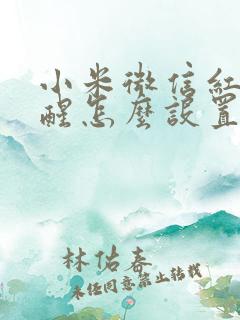 小米微信紅
醒怎麼設置
林佑春
未任同意禁止转载